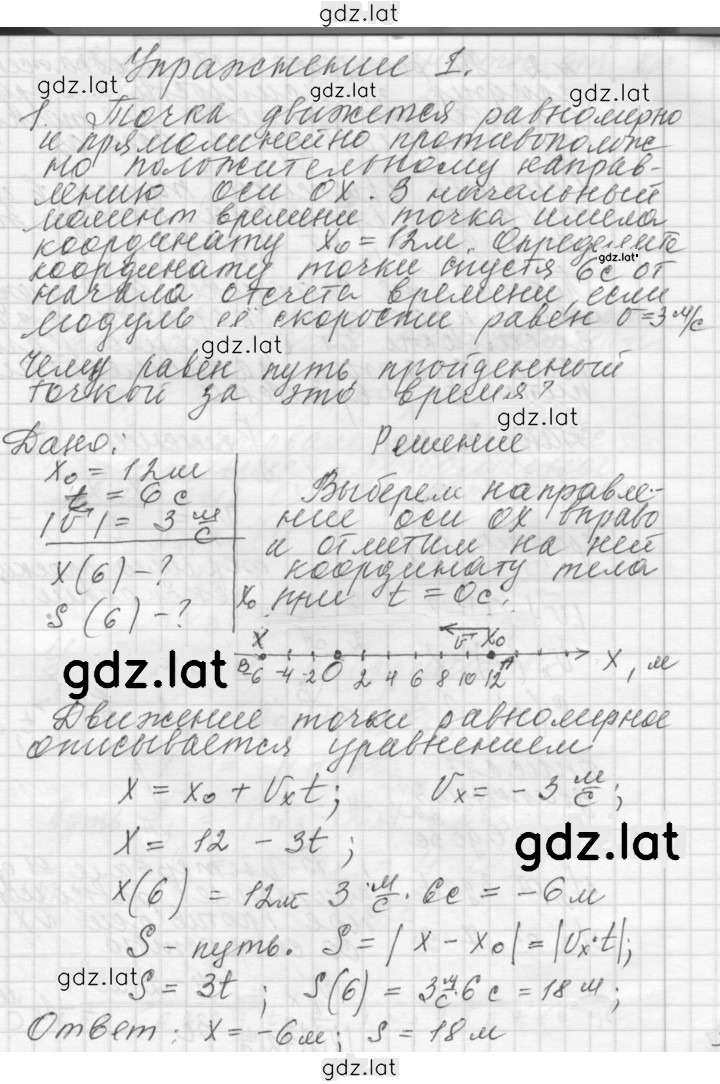 gdz.lat
Упражнение 1.
gdz.lat gdz.lat gdz.lat
1. Точка движется равномерно
и прямолинейно противополож
но положительному направ-
лению оси OX. В начальный
момент времени точка имела
координату x₀ = 12м. Определите
координату точки спустя 6с от
gdz.lat
начала отсчёта времени, если
модуль её скорости равен υ=3 м/с
gdz.lat
Чему равен путь, пройденный
точкой за это время?
gdz.lat
Дано: Решение
x₀ = 12м
t = 6 с
|υ⃗| = 3 м/с
x(6) - ?
S(6) - ?
Выберем направле-
ние оси OX вправо
и отметим на ней
координату тела
при t = 0с.
x₀
x υ⃗ x₀
B -6 -4 -2 0 2 4 6 8 10 12 A x, м
gdz.lat
Движение точки равномерное
описывается уравнением
x = x₀ + υₓt; υₓ = -3 м/с;
x = 12 - 3t;
gdz.lat
x(6) = 12м - 3 м/с · 6с = -6м
S - путь. S = |x - x₀| = |υₓ·t|;
gdz.lat
S = 3t; S(6) = 3 м/с · 6 с = 18 м;
Ответ: x = -6м; s = 18 м
gdz.lat